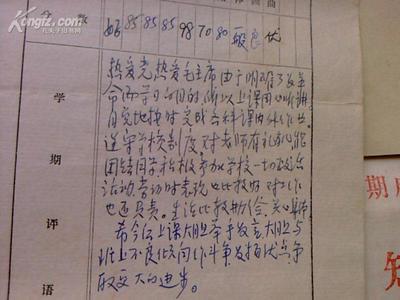 Kongfz.com
分 数
好 85 85 85 98 70 80 一般 良 优
学期评语
热爱党热爱毛主席由于明确了为革
命而学习的目的所以上课用心听讲
自觉地按时完成各科课内外作业
遵守学校制度对老师有礼貌能
团结同学积极参加学校一切政治
活动劳动时表现也比较好对工作
也还负责。生活比较 关心集体
希今后上课大胆举手发言大胆与
班上不良倾向作斗争发扬优点争
取更大的进步。
期